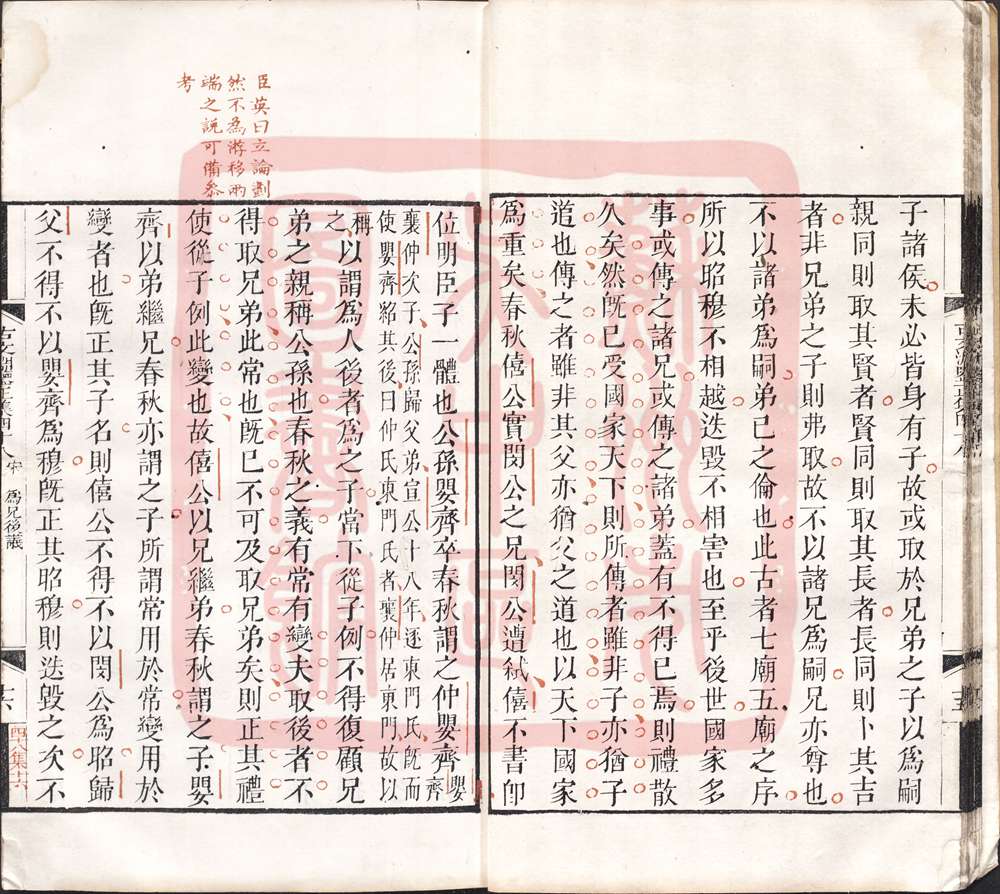 子諸侯未必皆身有子故或取於兄弟之子以爲嗣
親同則取其賢者賢同則取其長者長同則卜其吉
者非兄弟之子則弗取故不以諸兄爲嗣兄亦尊也
不以諸弟爲嗣弟已之倫也此古者七廟五廟之序
所以昭穆不相越迭毀不相害也至乎後世國家多
事或傳之諸兄或傳之諸弟蓋有不得已焉則禮散
久矣然旣已受國家天下則所傳者雖非子亦猶子
道也傳之者雖非其父亦猶父之道也以天下國家
爲重矣春秋僖公實閔公之兄閔公遭弑僖不書卽
臣英曰立論劃
然不爲游移兩
端之說可備參
考
位明臣子一體也公孫嬰齊卒春秋謂之仲嬰齊嬰齊
襄仲次子公孫歸父弟宣公十八年逐東門氏旣而
使嬰齊紹其後曰仲氏東門氏者襄仲居東門故以
稱之以謂爲人後者爲之子當下從子例不得復顧兄
弟之親稱公孫也春秋之義有常有變夫取後者不
得取兄弟此常也旣已不可及取兄弟矣則正其禮
使從子例此變也故僖公以兄繼弟春秋謂之子嬰
齊以弟繼兄春秋亦謂之子所謂常用於常變用於
變者也旣正其子名則僖公不得不以閔公爲昭歸
父不得不以嬰齊爲穆旣正其昭穆則迭毀之次不
宋
爲兄後議